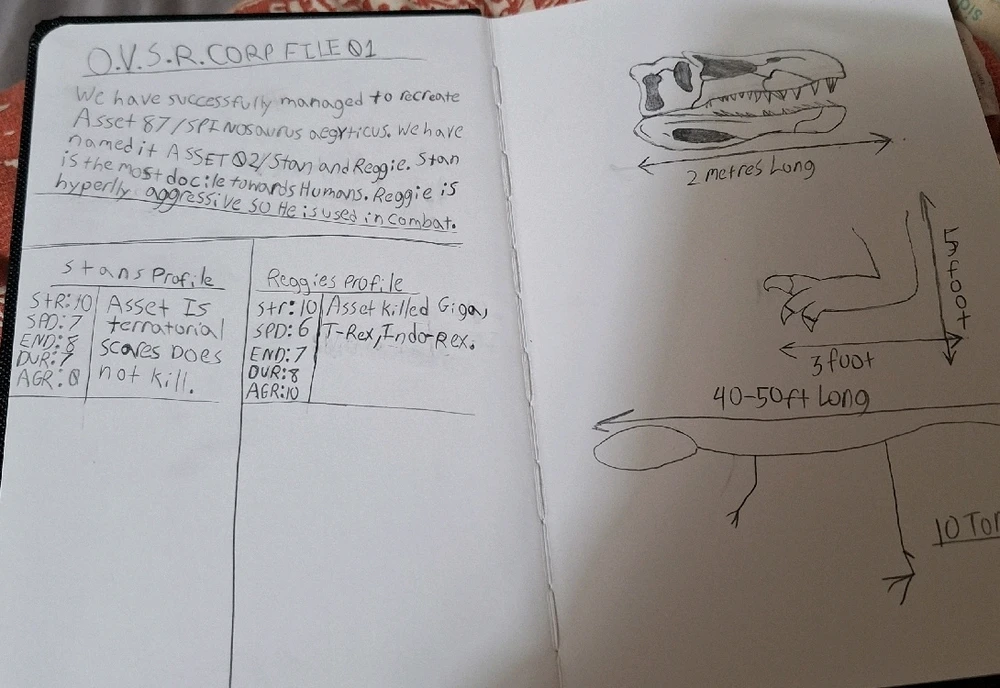 O.V.S.R. CORP FILE 01
We have successfully managed to recreate
Asset 87/SPINosaurus aegypticus. We have
named it ASSET 02/Stan and Reggie. Stan
is the most docile towards Humans. Reggie is
hyperlly aggressive so He is used in combat.
Stans Profile
StR: 10
SPD: 7
END: 8
DUR: 7
AGR: 0
Asset Is
terratorial
scares Does
not kill.
Reggies Profile
Str: 10
SPD: 6
END: 7
DUR: 8
AGR: 10
Asset killed Giga,
T-Rex, Indo-Rex.
2 metres Long
foot
3 foot
40-50ft Long
10 Ton